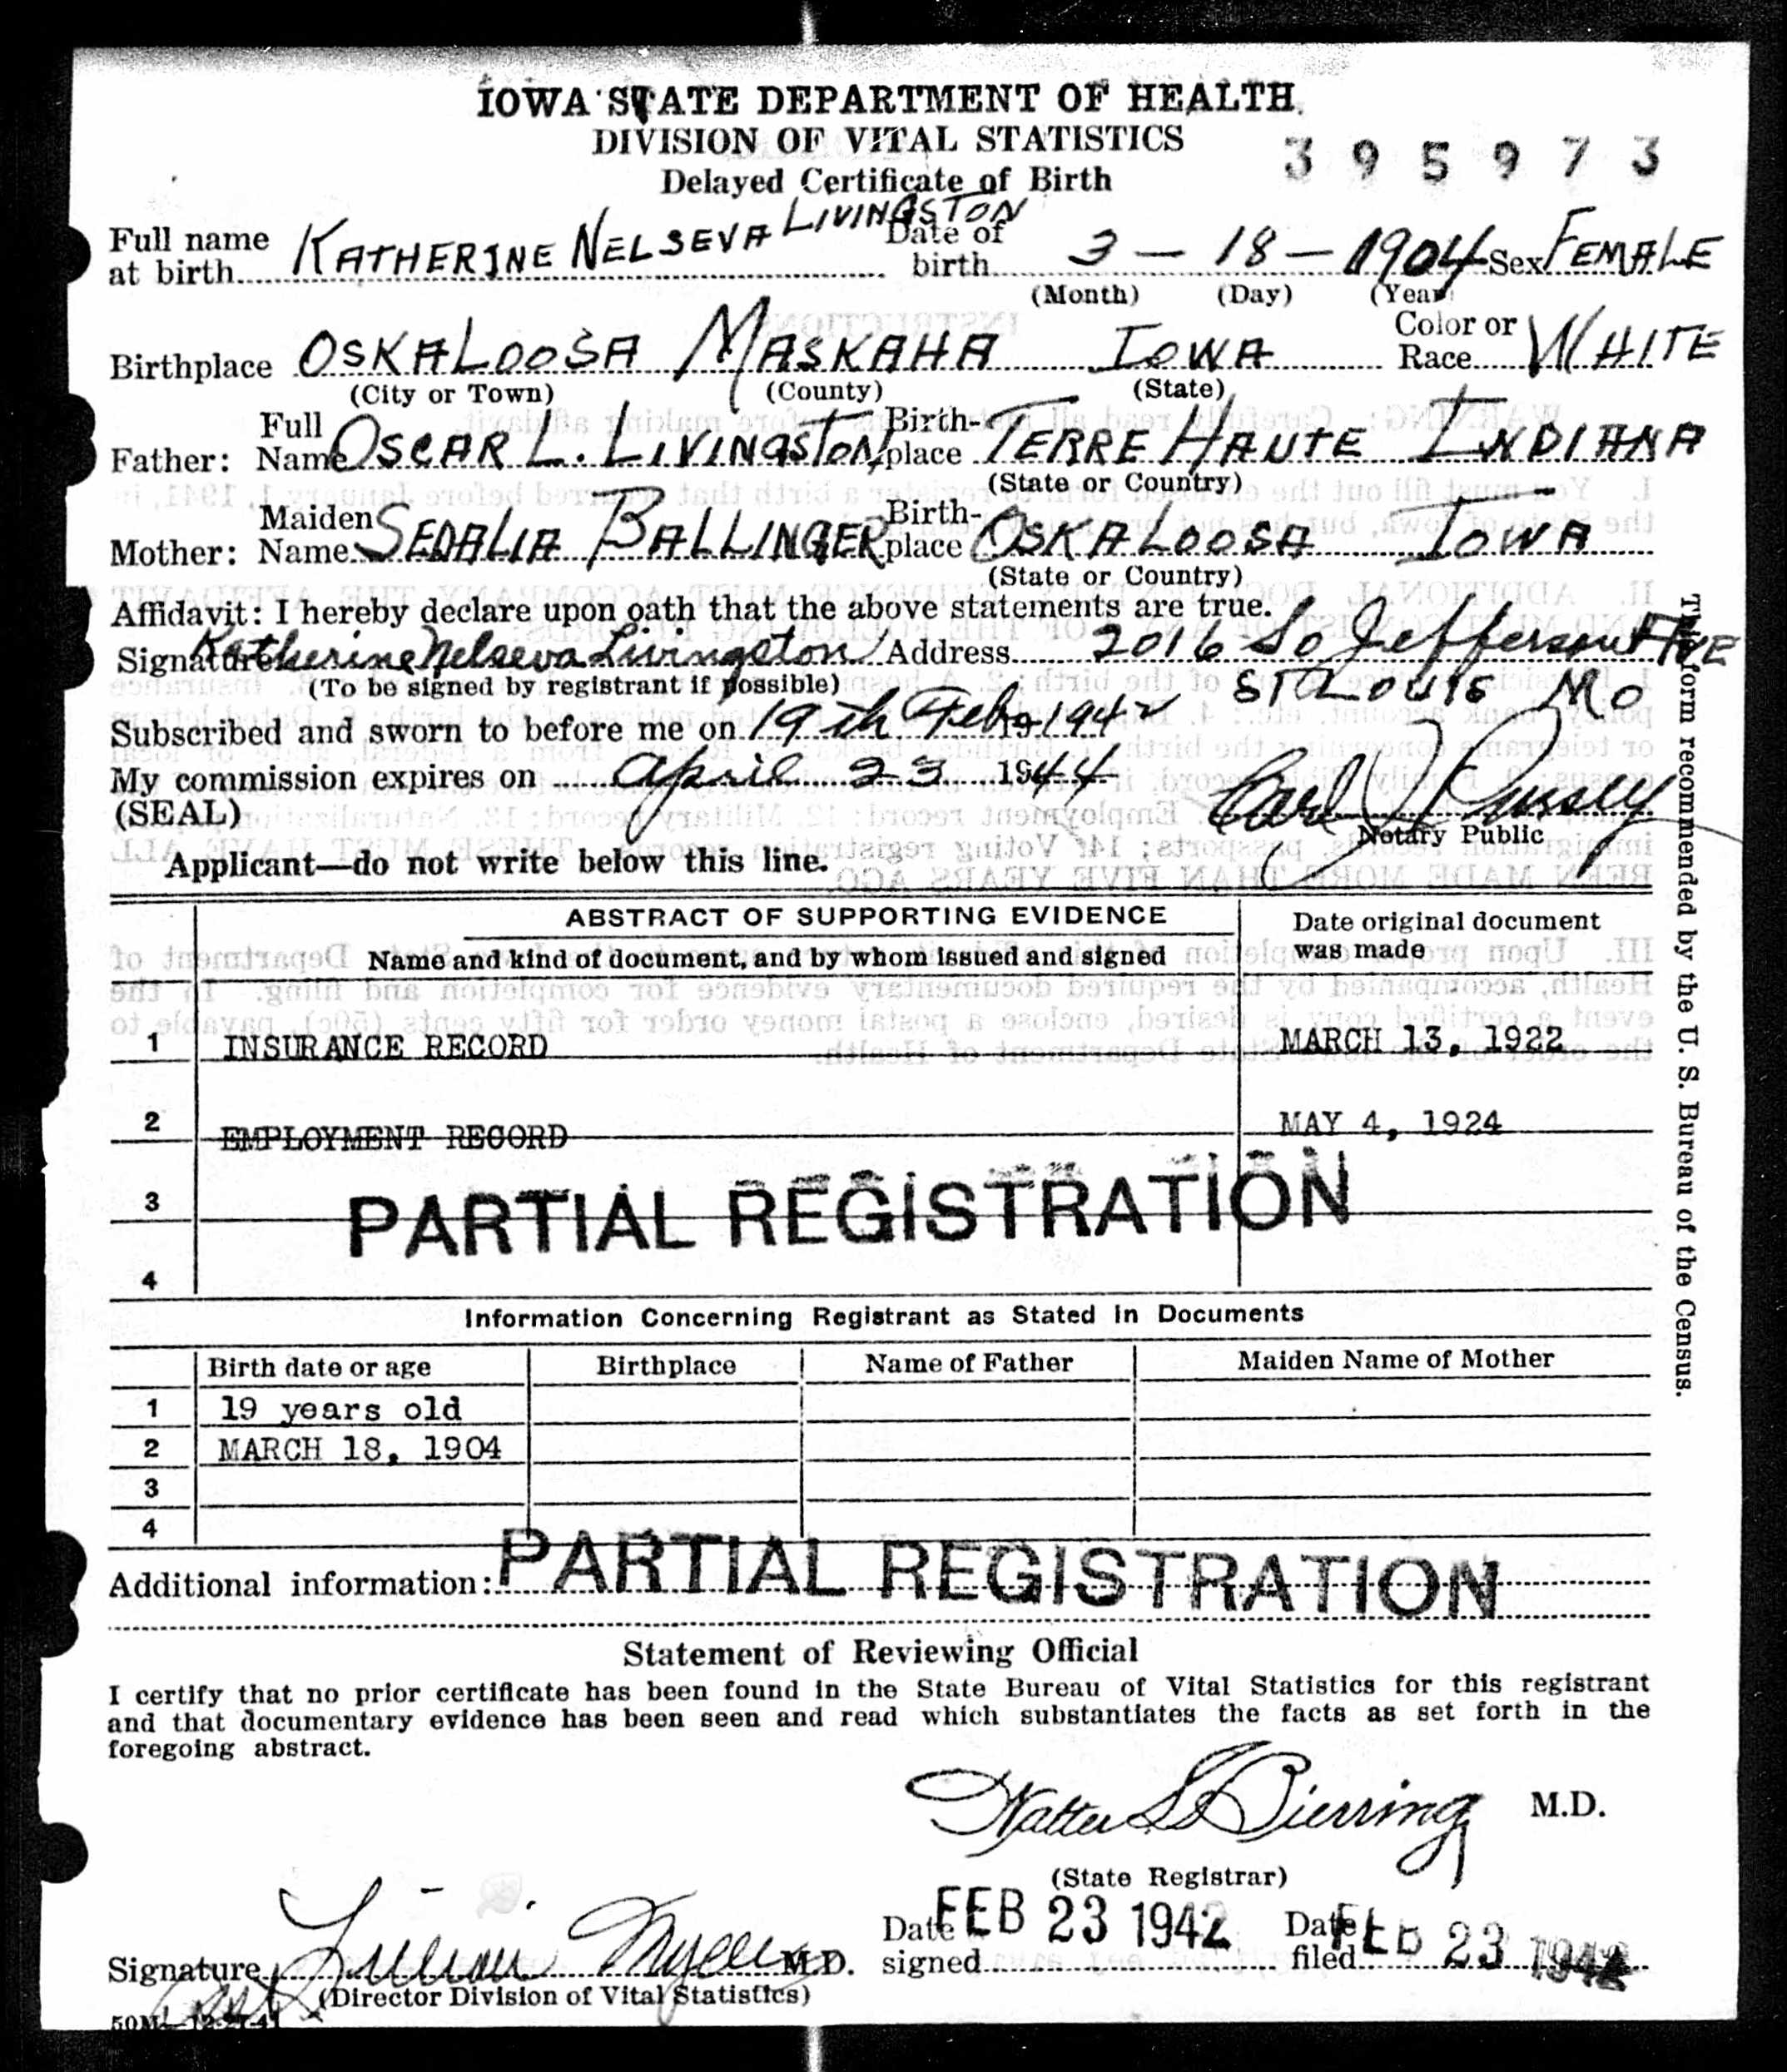 IOWA STATE DEPARTMENT OF HEALTH
DIVISION OF VITAL STATISTICS
395973
Delayed Certificate of Birth
Full name at birth KATHERINE NELSEVA LIVINGSTON Date of birth 3 - 18 - 1904 Sex FEMALE
(Month) (Day) (Year)
Birthplace OSKALOOSA MASKAHA IOWA Color or Race WHITE
(City or Town) (County) (State)
Father: Full Name OSCAR L. LIVINGSTON Birth-place TERRE HAUTE INDIANA
(State or Country)
Mother: Maiden Name SEDALIA BALLINGER Birth-place OSKALOOSA IOWA
(State or Country)
Affidavit: I hereby declare upon oath that the above statements are true.
Signature Katherine Nelseva Livingston Address 2016 So Jefferson AVE
(To be signed by registrant if possible) ST LOUIS MO
Subscribed and sworn to before me on 19th Feb 1942
My commission expires on April 23 1944
(SEAL) Carl
Notary Public
Applicant—do not write below this line.
ABSTRACT OF SUPPORTING EVIDENCE
Name and kind of document, and by whom issued and signed
Date original document was made
1 INSURANCE RECORD MARCH 13, 1922
2 EMPLOYMENT RECORD MAY 4, 1924
3
PARTIAL REGISTRATION
4
Information Concerning Registrant as Stated in Documents
Birth date or age Birthplace Name of Father Maiden Name of Mother
1 19 years old
2 MARCH 18, 1904
3
4
Additional information: PARTIAL REGISTRATION
Statement of Reviewing Official
I certify that no prior certificate has been found in the State Bureau of Vital Statistics for this registrant
and that documentary evidence has been seen and read which substantiates the facts as set forth in the
foregoing abstract.
Walter L Bierring M.D.
(State Registrar)
Signature Lillian M.D. Date signed FEB 23 1942 Date filed FEB 23 1942
(Director Division of Vital Statistics)
50M—12-27-41
This form recommended by the U. S. Bureau of the Census.